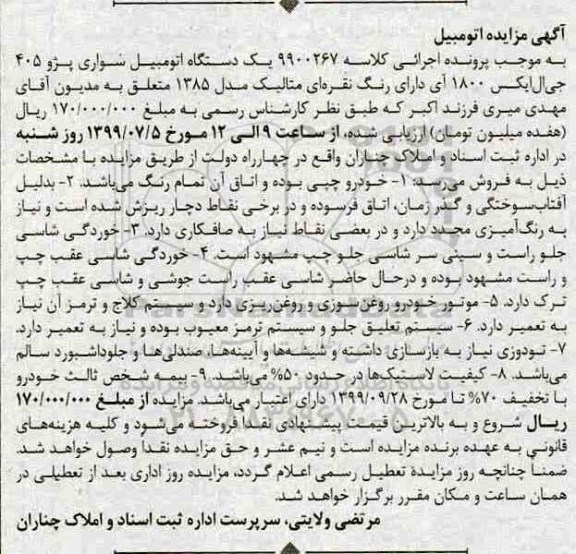 آگهی مزایده اتومبیل
به موجب پرونده اجرائی کلاسه ۹۹۰۰۲۶۷ یک دستگاه اتومبیل سواری پژو ۴۰۵
جی‌ال‌ایکس ۱۸۰۰ آی دارای رنگ نقره‌ای متالیک مدل ۱۳۸۵ متعلق به مدیون آقای
مهدی میری فرزند اکبر که طبق نظر کارشناس رسمی به مبلغ ۱۷۰/۰۰۰/۰۰۰ ریال
(هفده میلیون تومان) ارزیابی شده، از ساعت ۹ الی ۱۲ مورخ ۱۳۹۹/۰۷/۵ روز شنبه
در اداره ثبت اسناد و املاک چناران واقع در چهارراه دولت از طریق مزایده با مشخصات
ذیل به فروش می‌رسد: ۱- خودرو چپی بوده و اتاق آن تمام رنگ می‌باشد. ۲- بدلیل
آفتاب‌سوختگی و گذر زمان، اتاق فرسوده و در برخی نقاط دچار ریزش شده است و نیاز
به رنگ‌آمیزی مجدد دارد و در بعضی نقاط نیاز به صافکاری دارد. ۳- خوردگی شاسی
جلو راست و سینی سر شاسی جلو چپ مشهود است. ۴- خوردگی شاسی عقب چپ
و راست مشهود بوده و درحال حاضر شاسی عقب راست جوشی و شاسی عقب چپ
ترک دارد. ۵- موتور خودرو روغن سوزی و روغن‌ریزی دارد و سیستم کلاج و ترمز آن نیاز
به تعمیر دارد. ۶- سیستم تعلیق جلو و سیستم ترمز معیوب بوده و نیاز به تعمیر دارد.
۷- تودوزی نیاز به بازسازی داشته و شیشه‌ها و آیینه‌ها، صندلی‌ها و جلوداشبورد سالم
می‌باشد. ۸- کیفیت لاستیک‌ها در حدود ۵۰% می‌باشد. ۹- بیمه شخص ثالث خودرو
با تخفیف ۷۰% تا مورخ ۱۳۹۹/۰۹/۲۸ دارای اعتبار می‌باشد. مزایده از مبلغ ۱۷۰/۰۰۰/۰۰۰
ریال شروع و به بالاترین قیمت پیشنهادی نقداً فروخته می‌شود و کلیه هزینه‌های
قانونی به عهده برنده مزایده است و نیم عشر و حق مزایده نقداً وصول خواهد شد.
ضمناً چنانچه روز مزایدۀ تعطیل رسمی اعلام گردد، مزایده روز اداری بعد از تعطیلی در
همان ساعت و مکان مقرر برگزار خواهد شد.
مرتضی ولایتی، سرپرست اداره ثبت اسناد و املاک چناران